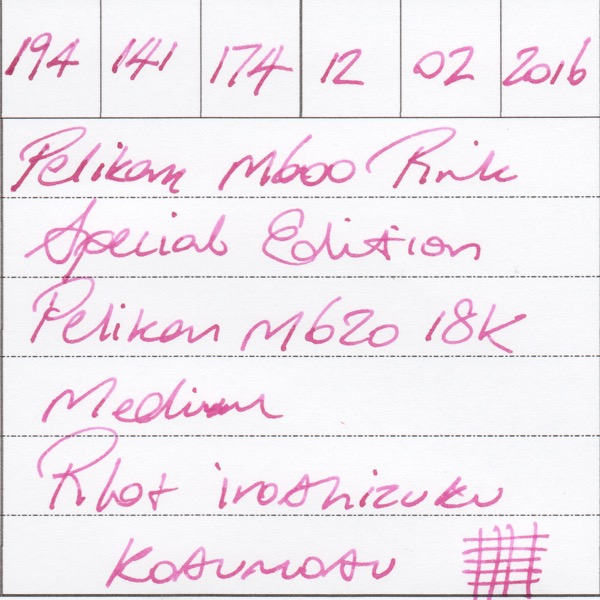 194 141 174 12 02 2016
Pelikan M600 Pink
Special Edition
Pelikan M620 18K
Medium
Pilot iroshizuku
Kosumosu